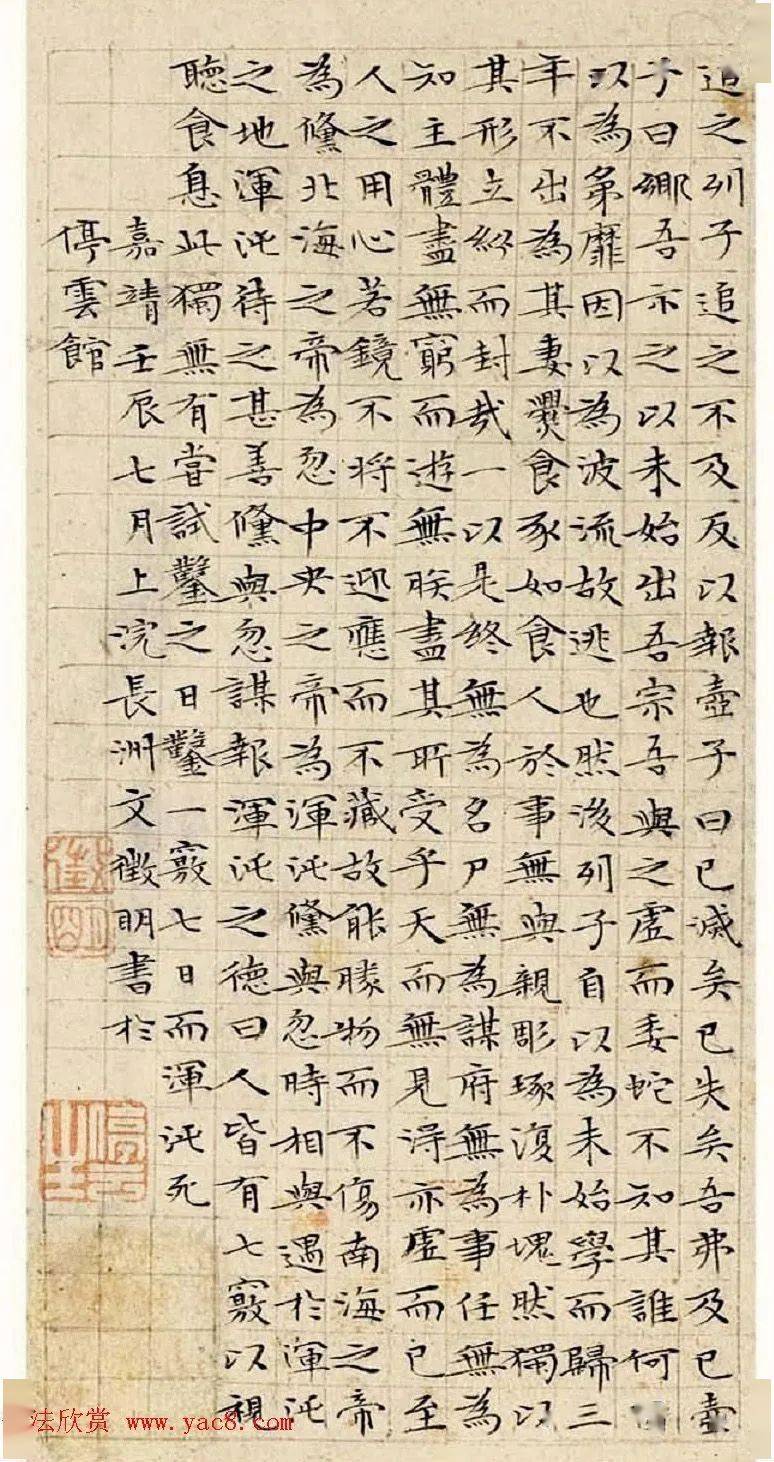 追之列子追之不及反以報壺子曰已滅矣已失矣吾弗及已壺
子曰鄉吾示之以未始出吾宗吾與之虛而委蛇不知其誰何
以為弟靡因以為波流故逃也然後列子自以為未始學而歸三
年不出為其妻爨食豕如食人於事無與親彫琢復朴塊然獨以
其形立紛而封哉一以是終無為名尸無為謀府無為事任無為
知主體盡無窮而遊無朕盡其所受乎天而無見得亦虛而已至
人之用心若鏡不將不迎應而不藏故能勝物而不傷南海之帝
為儵北海之帝為忽中央之帝為渾沌儵與忽時相與遇於渾沌
之地渾沌待之甚善儵與忽謀報渾沌之德曰人皆有七竅以視
聽食息此獨無有嘗試鑿之日鑿一竅七日而渾沌死
嘉靖壬辰七月上浣長洲文徵明書於
停雲館
徵明
法欣赏 www.yac8.com